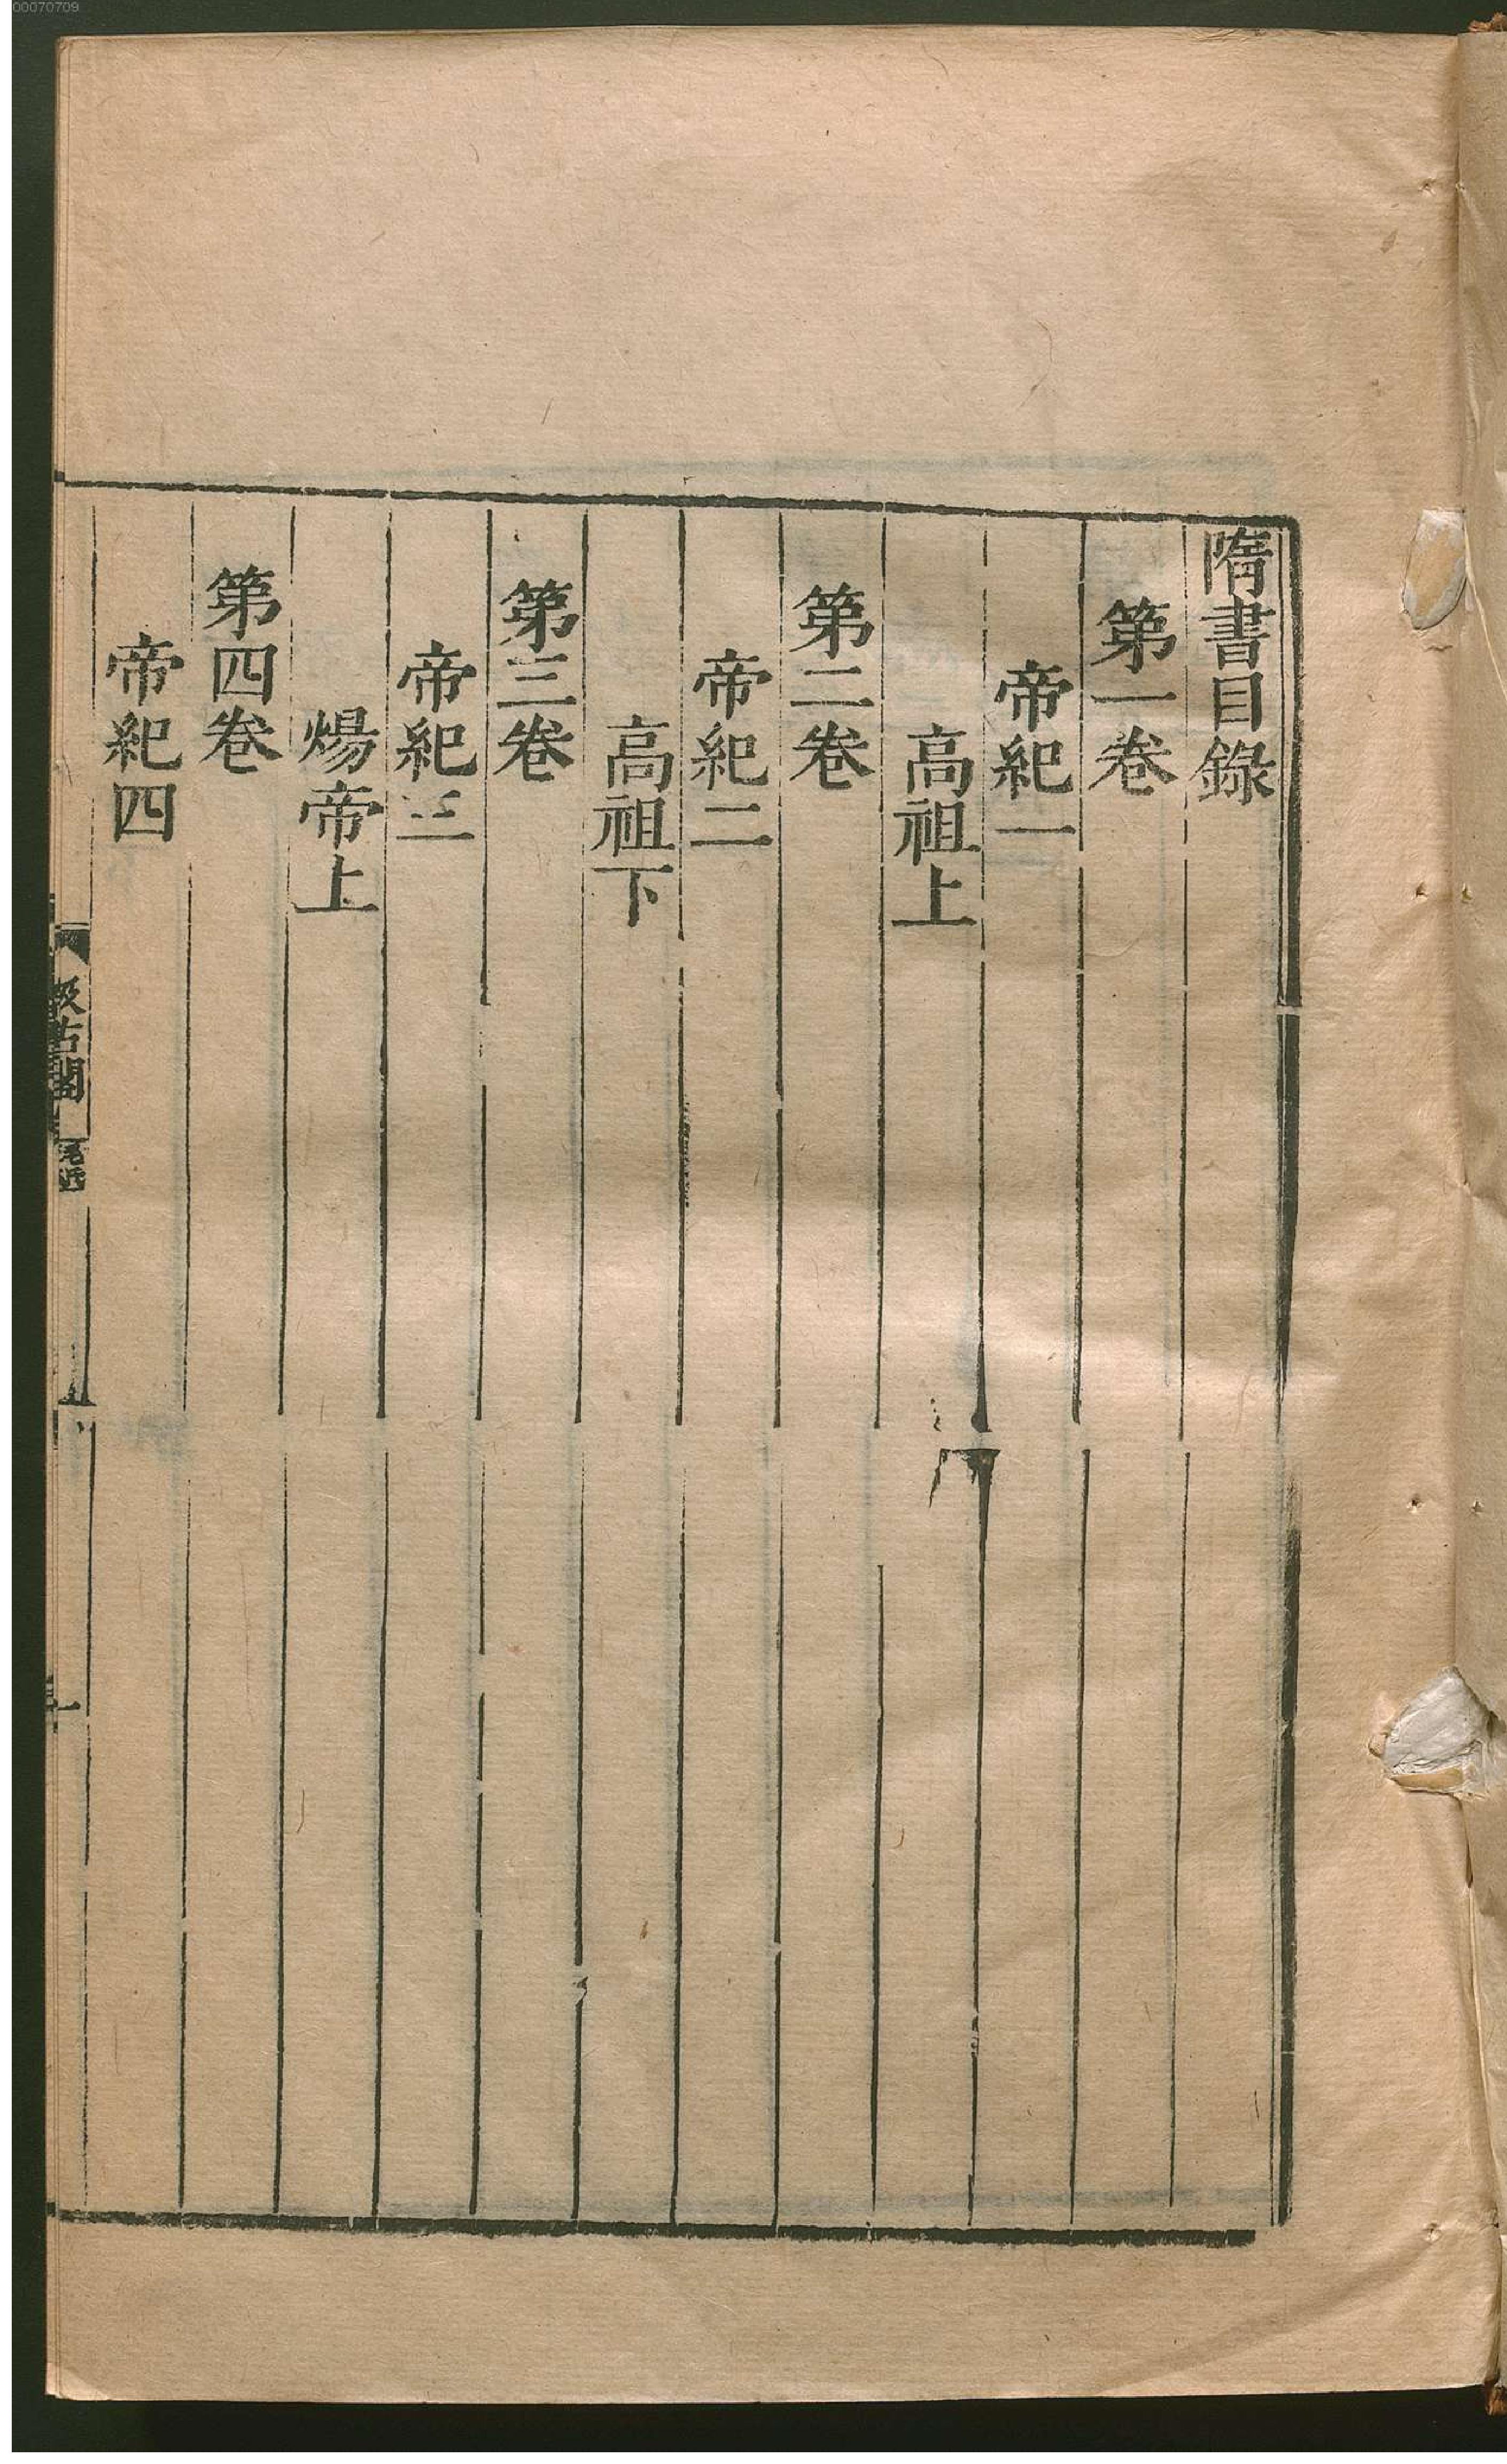 00070709
隋書目錄
第一卷
帝紀一
高祖上
第二卷
帝紀二
高祖下
第三卷
帝紀三
煬帝上
第四卷
帝紀四
汲古閣
毛氏
一